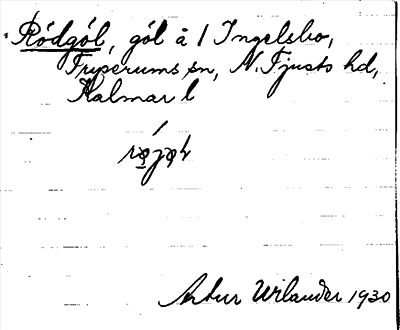 Rödgöl, göl å 1 Ingelsbo,
Tryserums sn, N. Tjusts hd,
Kalmar l
Artur Wilander 1930